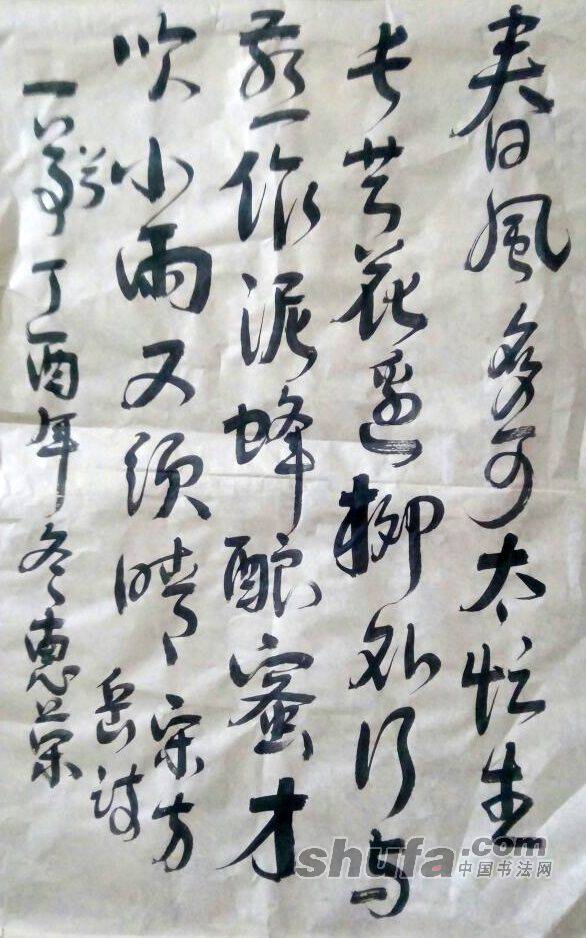 春風多可太忙生
长共花邊柳外行与
燕作泥蜂酿蜜才
吹小雨又须晴宋方
岳诗
一丁酉年冬惠荣
shufa.com
中国书法网